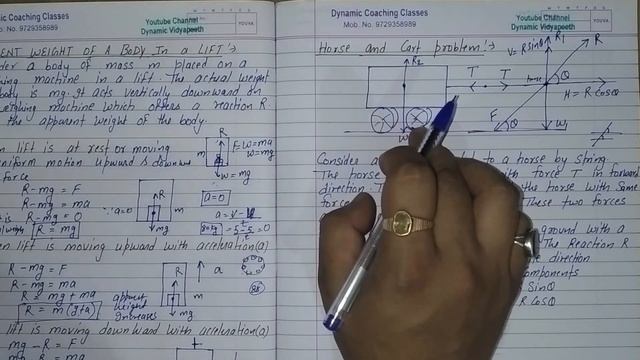 Dynamic Coaching Classes
Mob. No. 9729358989
Youtube Channel
Dynamic Vidyapeeth
YOUVA
ENT WEIGHT OF A BODY In a LIFT:→
der a body of mass m placed on a
ing machine in a lift. The actual weight
body is mg. It acts vertically downward on
weighing machine which offers a reaction R
the apparent weight of the body.
en lift is at rest or moving
uniform motion upward & downward
force
R-mg = F
R-mg = ma
R-mg = 0
R = mg
∵ a=0
R
m
mg
R
F=ma
w=mg
w=mg
a=0
en lift is moving upward with acceleration(a)
R-mg = F
R-mg = ma
R = mg + ma
R = m(g+a)
apparent
weight
increases
R
a
m
mg
lift is moving downward with acceleration(a)
mg - R = F
mg - R = ma
Dynamic Coaching Classes
Mob. No. 9729358989
Youtube Channel
Dynamic Vidyapeeth
YOUVA
Horse and Cart problem!→
V= R sinθ
R1
R
R2
T
T
horse
θ
H = R cosθ
F
θ
W1
W
Consider a
to a horse by string.
The horse
with force T in forward
direction. T
the horse with same
force
These two forces
ground with a
The Reaction R
direction
components
Sinθ
R cosθ